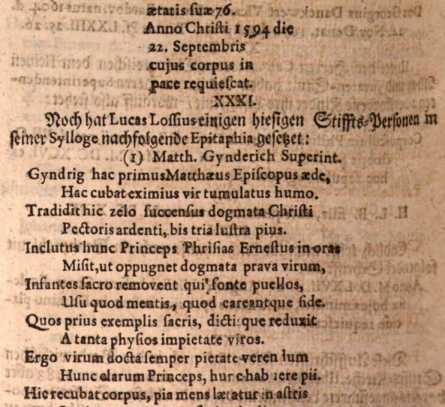 ætatis suæ 76.
Anno Christi 1594 die
22. Septembris
cujus corpus in
pace requiescat.
XXXI.
Noch hat Lucas Lossius einigen hiesigen Stiffts-Personen in
seiner Sylloge nachfolgende Epitaphia gesetzet:
(1) Matth. Gynderich Superint.
Gyndrig hac primus Matthæus Episcopus æde,
Hac cubat eximius vir tumulatus humo.
Tradidit hic zelo succensus dogmata Christi
Pectoris ardenti, bis tria lustra pius.
Inclutus hunc Princeps Phrisias Ernestus in oras
Misit, ut oppugnet dogmata prava virum,
Infantes sacro removent qui fonte puellos,
Usu quod mentis, quod careantque fide.
Quos prius exemplis sacris, dictisque reduxit
A tanta physios impietate viros.
Ergo virum docta semper pietate verendum
Hunc clarum Princeps, pii.
Hic recubat corpus, pia mens lætatur in astris